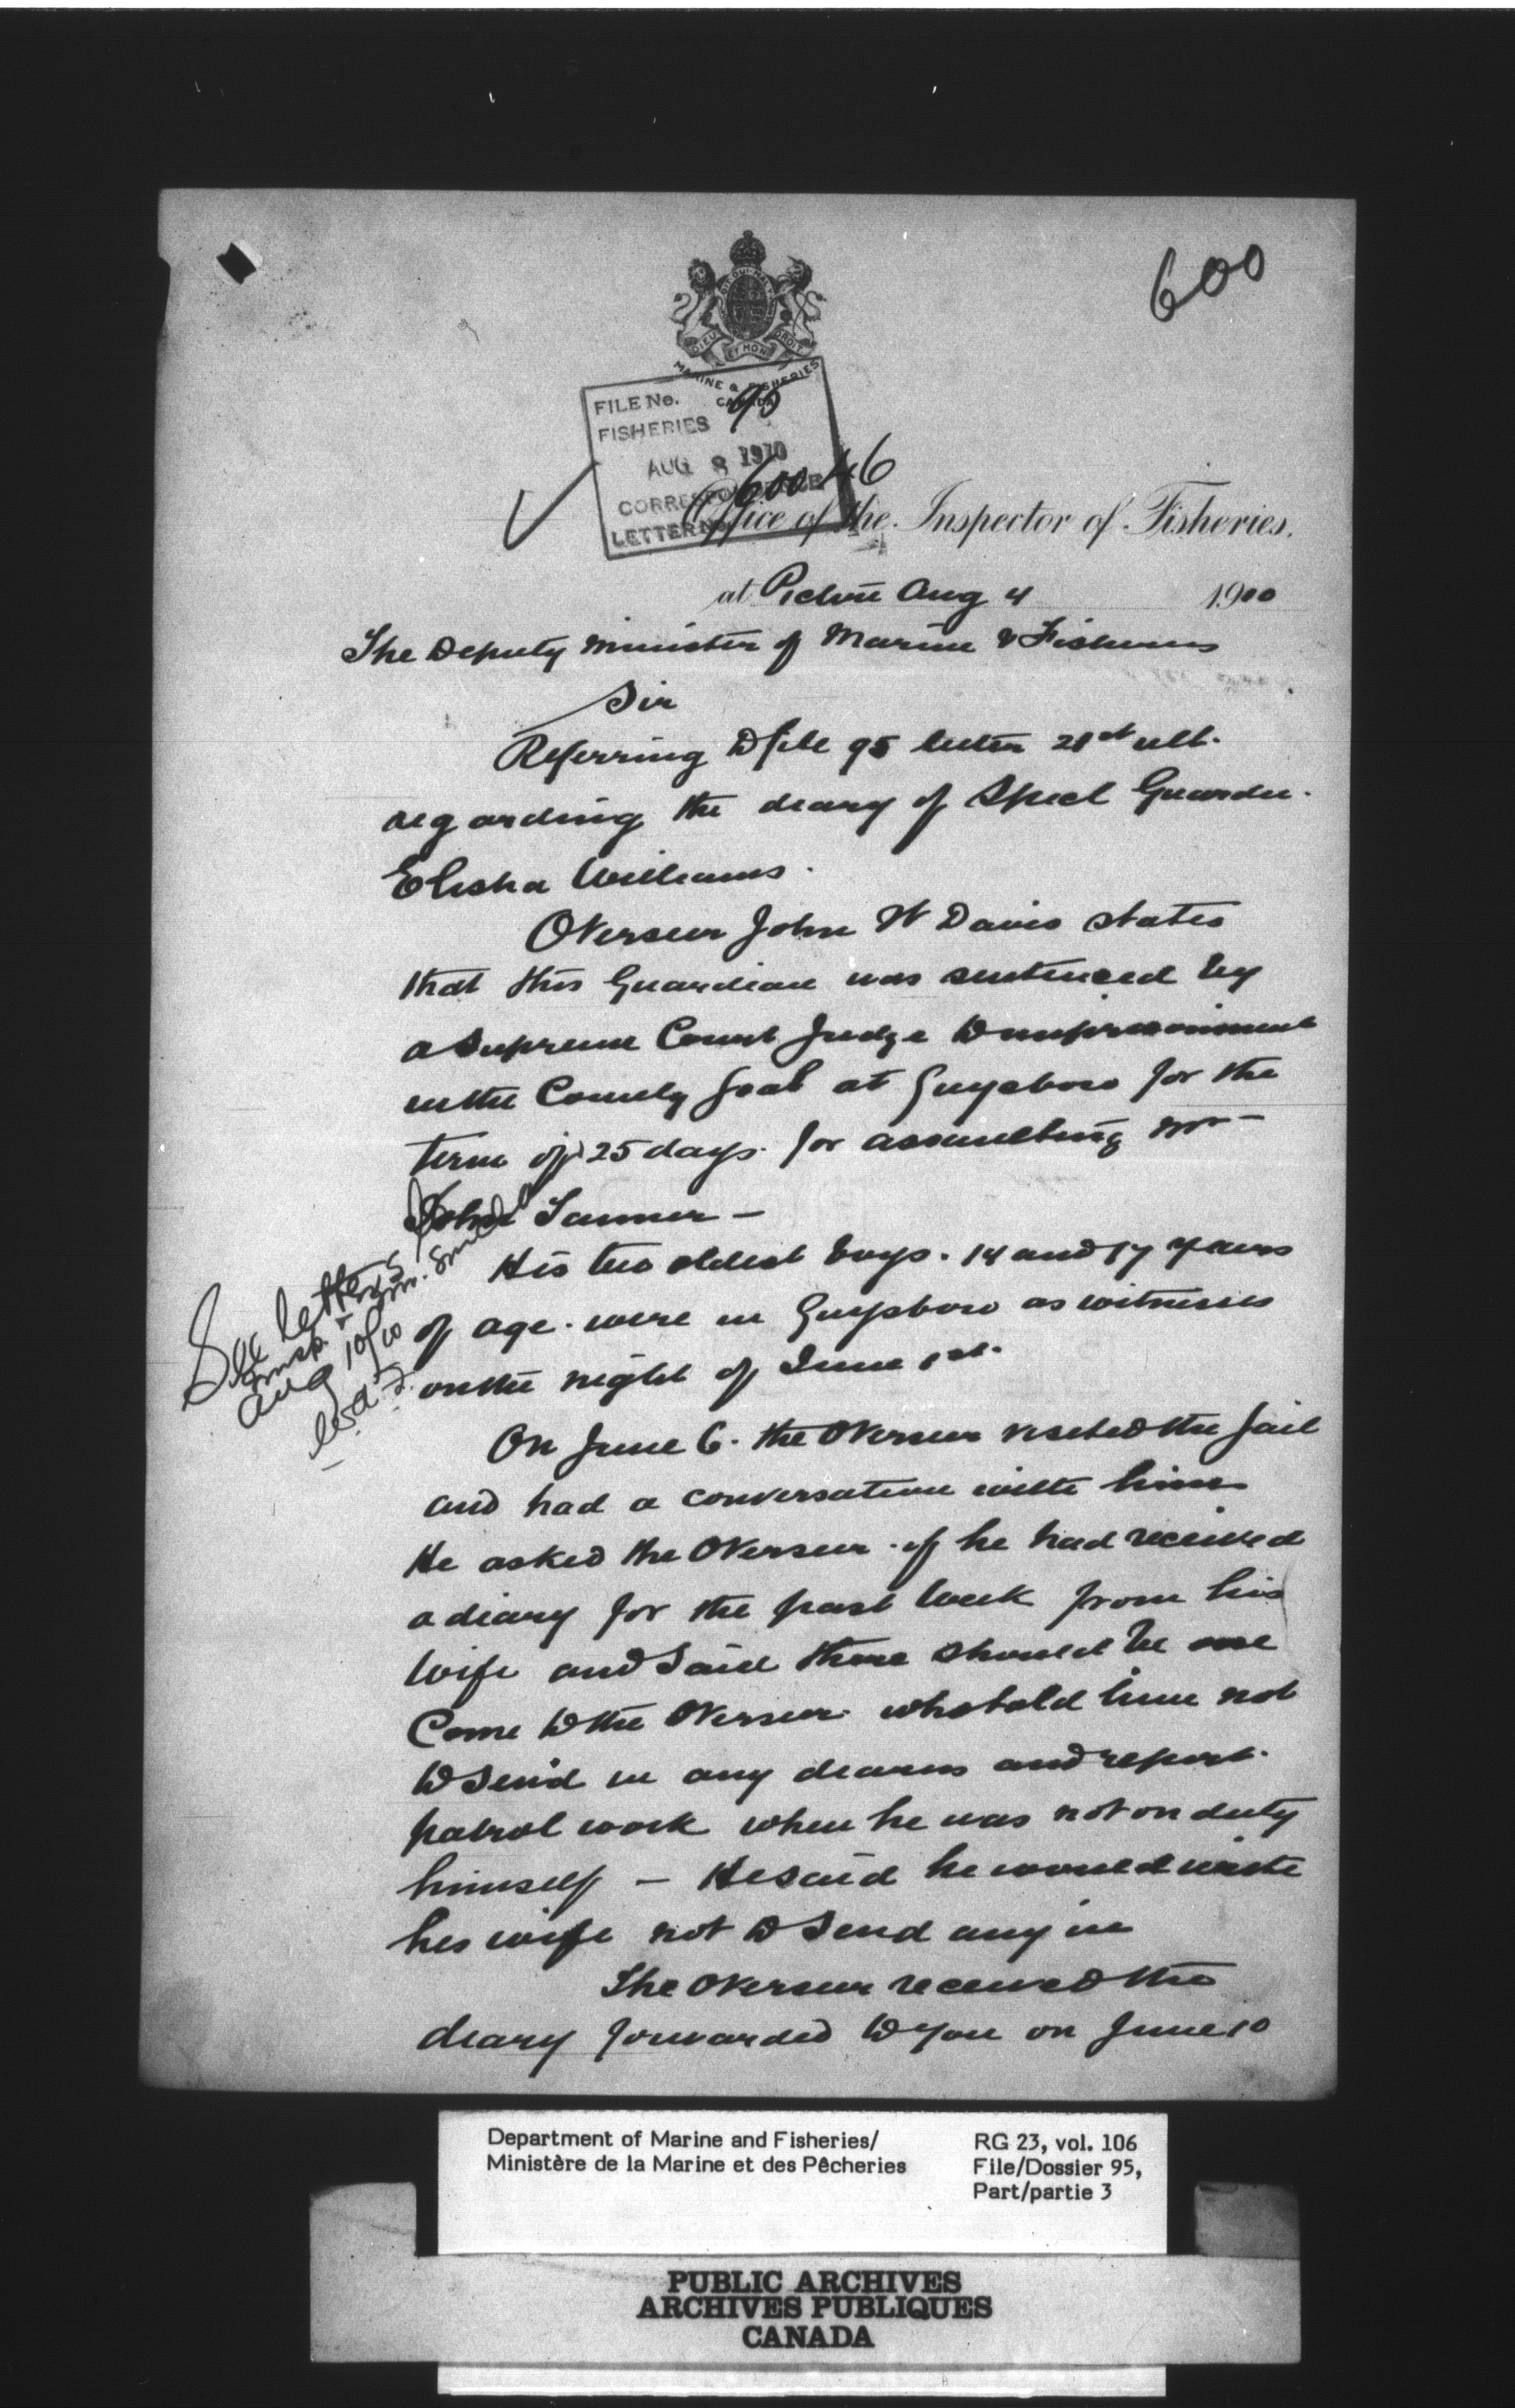 600
DIEU ET MON DROIT
MARINE & FISHERIES
CANADA
FILE No. 95
FISHERIES
AUG 8 1910
CORRESPONDENCE
LETTER No. 60046
Office of the Inspector of Fisheries.
at Pictou Aug 4 1910
The Deputy Minister of Marine & Fisheries
Sir
Referring to file 95 letter 21st ult.
regarding the diary of Specl Guardn.
Elisha Williams.
Overseer John W Davis states
that this Guardian was sentenced by
a Supreme Court Judge to imprisonment
in the County Goal at Guysboro for the
term of 25 days. for assaulting Mr
John Tanner —
His two oldest boys. 14 and 17 years
of age. were in Guysboro as witnesses
on the night of June 1st.
See letters
Insp. &
Aug 10/10
On June 6. the Overseer visited the Jail
and had a conversation with him
He asked the Overseer. if he had received
a diary for the past week from his
wife and said there should be one
Come to the Overseer who told him not
to send in any diaries and report.
patrol work when he was not on duty
himself — He said he would write
his wife not to send any in
The Overseer received the
diary forwarded to you on June 10
Department of Marine and Fisheries/
Ministère de la Marine et des Pêcheries
RG 23, vol. 106
File/Dossier 95,
Part/partie 3
PUBLIC ARCHIVES
ARCHIVES PUBLIQUES
CANADA